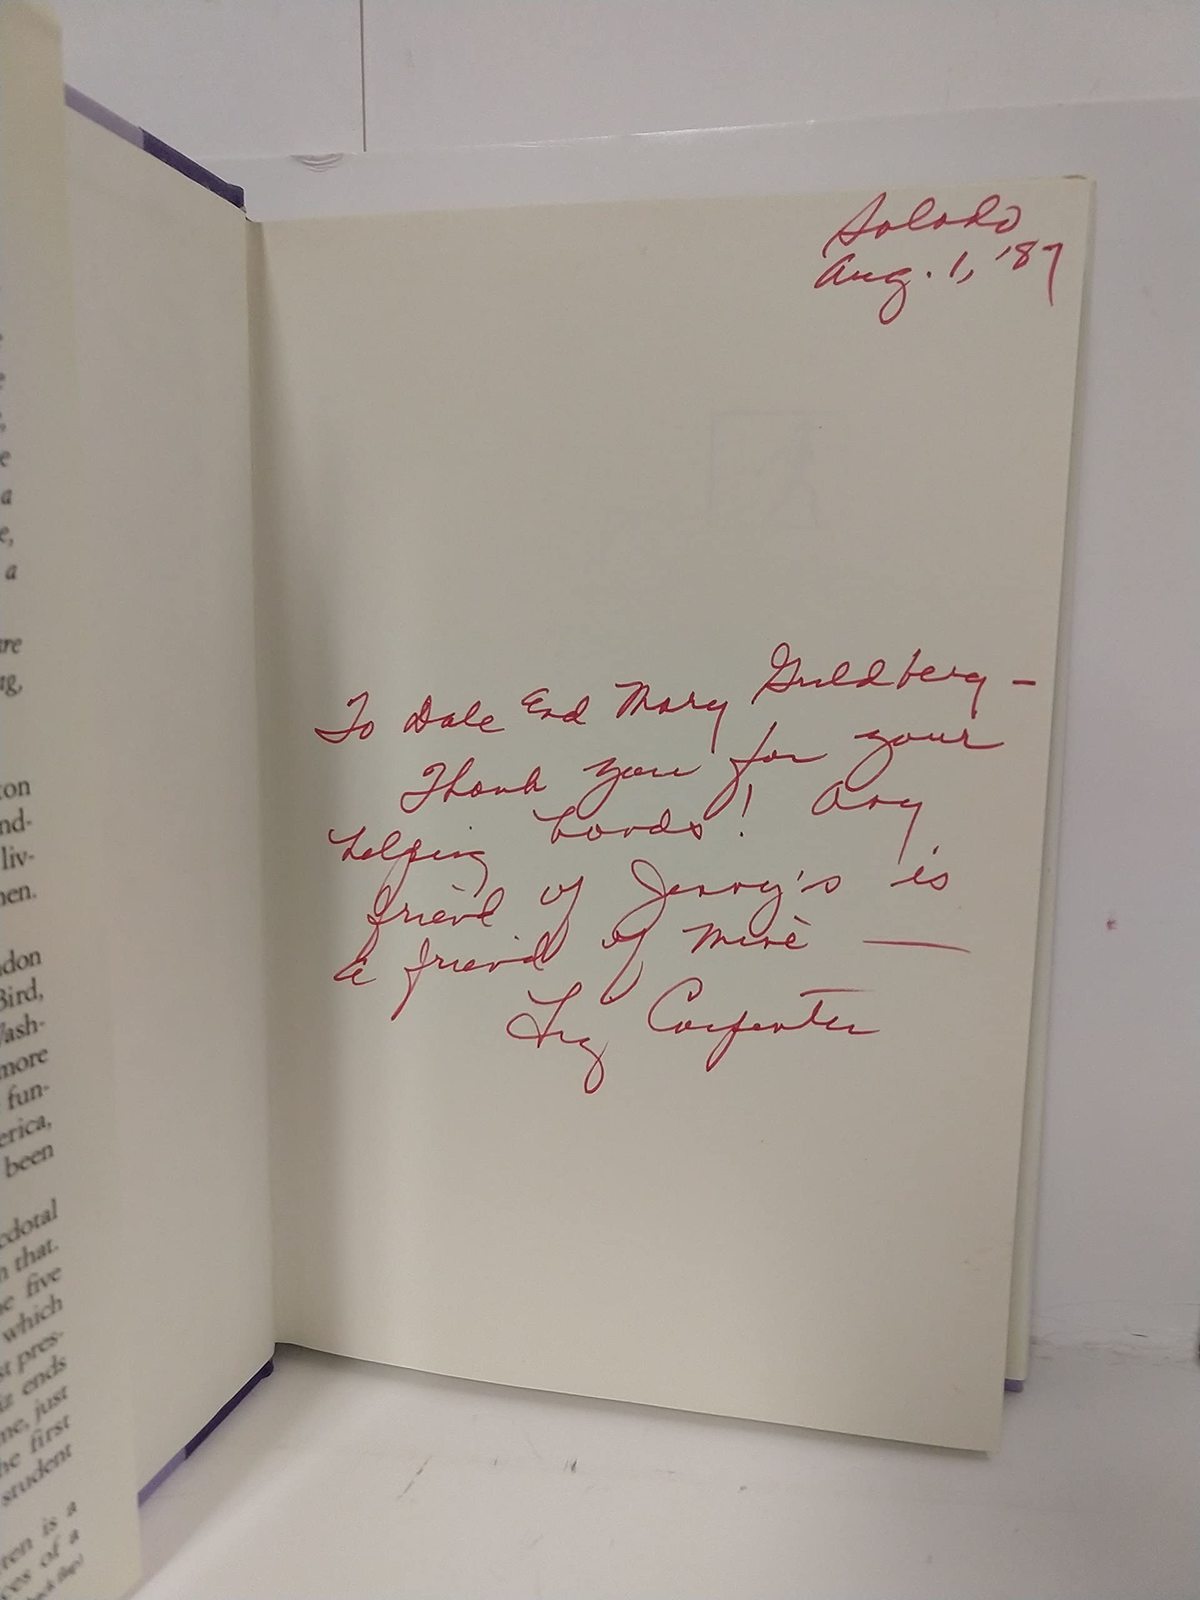 e
a
e,
a
are
ng,
ton
nd-
liv-
men.
ndon
Bird,
Wash-
more
fun-
erica,
been
cdotal
n that.
he five
which
st pres-
iz ends
me, just
he first
student
ren is a
ces of a
back flap)
Salado
Aug. 1, '87
To Dale and Mary Guldberg —
Thank you for your
helping hands! Any
friend of Jenny's is
a friend of mine —
Liz Carpenter